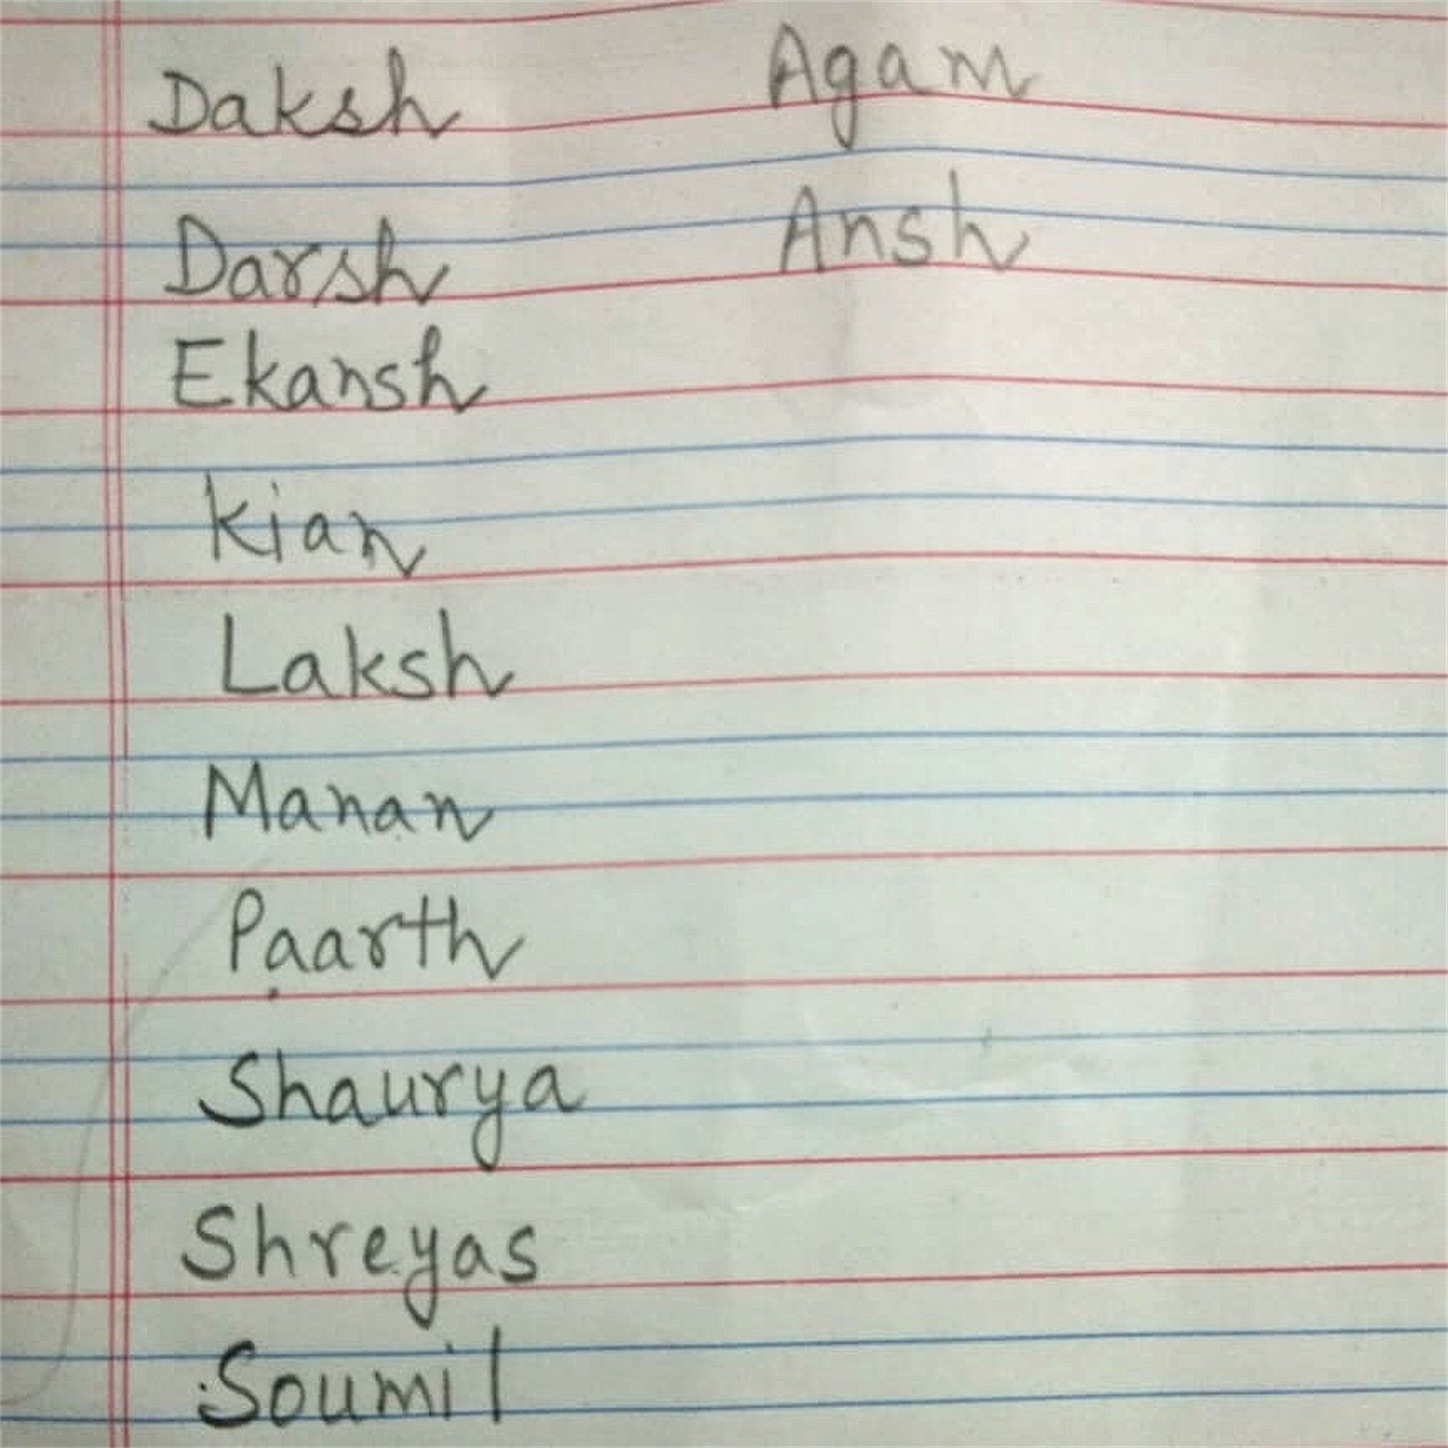 Daksh Agam
Darsh Ansh
Ekansh
Kian
Laksh
Manan
Paarth
Shaurya
Shreyas
Soumil